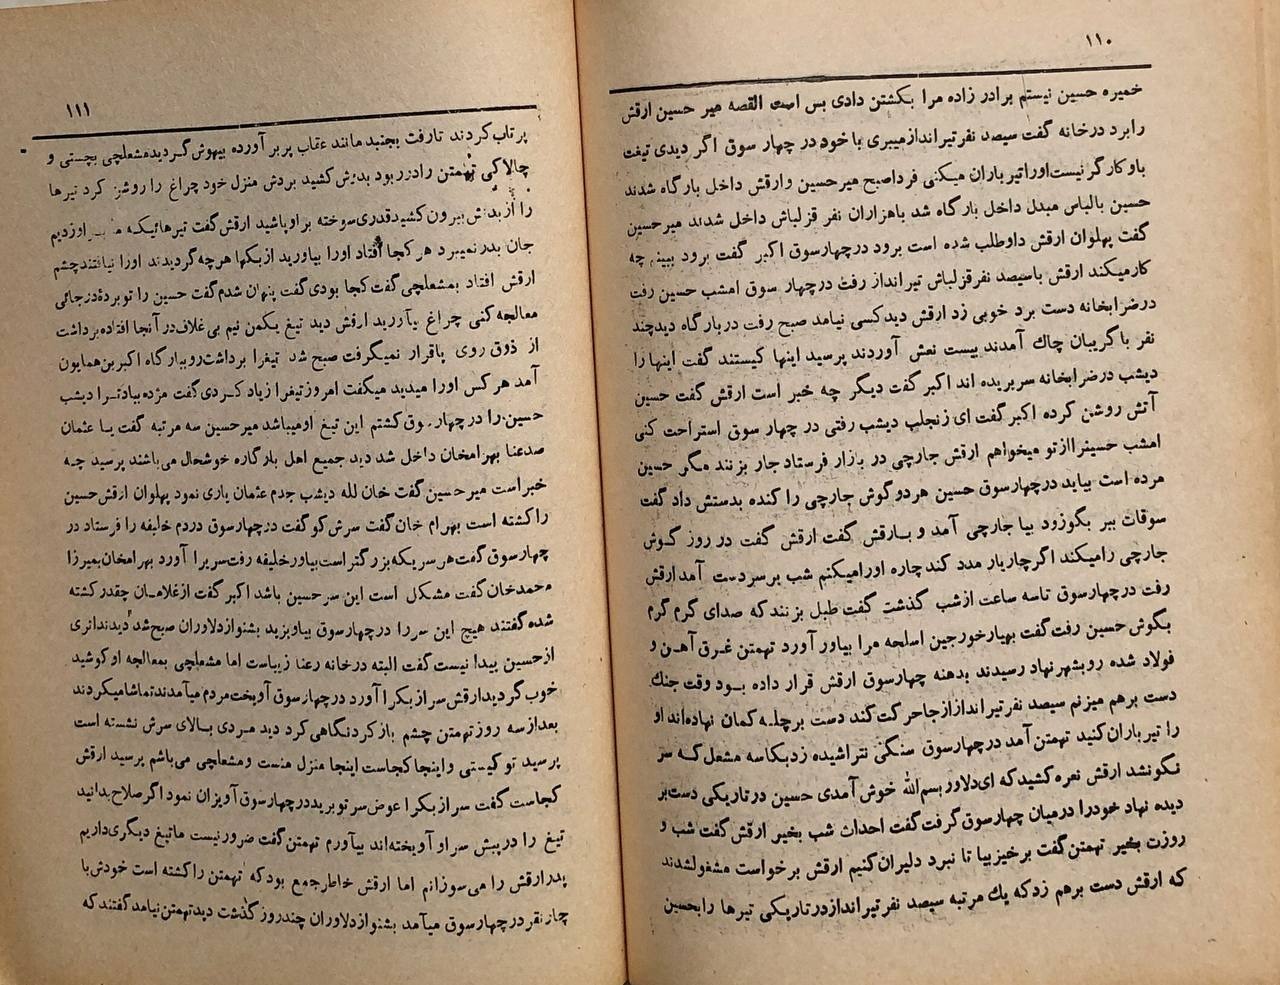 ۱۱۰
خمیره حسین نیستم برادر زاده مرا بکشتن دادی بس است القصه میر حسین ارقش
رابرد درخانه گفت سیصد نفر تیر انداز میبری با خود در چهار سوق اگر دیدی تیغت
باو کار گر نیست اوراتیر باران میکنی فردا صبح میرحسین وارقش داخل بارگاه شدند
حسین بالباس مبدل داخل بارگاه شد باهزاران نفر قزلباش داخل شدند میرحسین
گفت پهلوان ارقش داوطلب شده است برود درچهارسوق اکبر گفت برود ببینم چه
کارمیکند ارقش باسیصد نفر قزلباش تیر انداز رفت درچهار سوق امشب حسین رفت
درضرابخانه دست برد خوبی زد ارقش دید کسی نیامد صبح رفت دربارگاه دیدچند
نفر با گریبان چاك آمدند بیست نعش آوردند پرسید اینها کیستند گفت اینها را
دیشب درضرابخانه سربریده اند اکبر گفت دیگر چه خبر است ارقش گفت حسین
آتش روشن کرده اکبر گفت ای زنجلب دیشب رفتی در چهار سوق استراحت کنی
امشب حسینراازتو میخواهم ارقش جارچی در بازار فرستاد جار بزنند مگر حسین
مرده است بیاید درچهارسوق حسین هر دو گوش جارچی را کنده بدستش داد گفت
سوقات ببر بگوزود بیا جارچی آمد و بارقش گفت ارقش گفت در روز گوش
جارچی رامیکند اگر چاریار مدد کند چاره اورامیکنم شب برسر دست آمدارقش
رفت درچهارسوق تاسه ساعت ازشب گذشت گفت طبل بزنند که صدای گرم گرم
بگوش حسین رفت گفت بهیار خورجین اسلحه مرا بیاور آورد تهمتن غرق آهن و
فولاد شده روبشهر نهاد رسیدند بدهنه چهارسوق ارقش قرار داده بود وقت جنك
دست برهم میزنم سیصد نفر تیر انداز از جاحرکت کند دست برچله کمان نهاده اند او
را تیر باران کنید تهمتن آمد درچهارسوق سنگی نتراشیده زد بکاسه مشعل که سر
نگونشد ارقش نعره کشید که ای دلاور بسم الله خوش آمدی حسین درتاریکی دست بر
دیده نهاد خودرا درمیان چهارسوق گرفت گفت احداث شب بخیر ارقش گفت شب و
روزت بخیر تهمتن گفت برخیز بیا تا نبرد دلیران کنیم ارقش برخواست مشغولشدند
که ارقش دست برهم زد که یك مرتبه سیصد نفر تیر انداز درتاریکی تیرها رابحسین
۱۱۱
پرتاب کردند تارفت بجنبد مانند عقاب پر بر آورده بیهوش گردید مشعلچی بچستی و
چالاکی تهمتن رادر ربود بدوش کشید بردش منزل خود چراغ را روشن کرد تیرها
را از بدنش بیرون کشید قدری سوخته براو پاشید ارقش گفت تیرهائیکه اوزدیم
جان بدر نمیبرد هر کجا افتاد اورا بیاورید از بکها هر چه گردیدند اورا نیافتند چشم
ارقش افتاد بمشعلچی گفت کجا بودی گفت پنهان شدم گفت حسین را توبردۀ درجائی
معالجه کنی چراغ بیآورید ارقش دید تیغ یکمن نیم بی غلاف در آنجا افتاده برداشت
از ذوق روی پاقرار نمیگرفت صبح شد تیغرا برداشت روببارگاه اکبر بن همایون
آمد هر کس اورا میدید میگفت امروز تیغرا زیاد کردی گفت مژده بیاد ترا دیشب
حسین را در چهارسوق کشتم این تیغ او میباشد میرحسین سه مرتبه گفت یا عثمان
صدعنا بهرامخان داخل شد دید جمیع اهل بارگاره خوشحال می باشند پرسید چه
خبر است میرحسین گفت خان لله دیشب جدم عثمان یاری نمود پهلوان ارقش حسین
را کشته است بهرام خان گفت سرش کو گفت درچهارسوق دردم خلیفه را فرستاد در
چهارسوق گفت هر سریکه بزرگتر است بیاور خلیفه رفت سر یرا آورد بهرامخان بمیرزا
محمدخان گفت مشکل است این سرحسین باشد اکبر گفت از غلامان چقدر کشته
شده گفتند هیچ این سررا درچهارسوق بیاویزید بشنواز دلاوران صبح شد دیدنداثری
از حسین پیدا نیست گفت البته درخانه رعنا زیباست اما مشعلچی بمعالجه او کوشید
خوب گردید ارقش سر از بکرا آورد درچهارسوق آویخت مردم میآمدند تماشامیکردند
بعد از سه روز تهمتن چشم باز کرد نگاهی کرد دید مردی بالای سرش نشسته است
پرسید تو کیستی و اینجا کجاست اینجا منزل منست ومشعلچی می باشم پرسید ارقش
کجاست گفت سر از بکرا عوض سر تو برید در چهارسوق آویزان نمود اگر صلاح بدانید
تیغ را در پیش سراو آویخته اند بیآورم تهمتن گفت ضرور نیست ماتیغ دیگری داریم
پدر ارقش را می سوزانم اما ارقش خاطر جمع بود که تهمتن را کشته است خودش با
چار نفر در چهارسوق میآمد بشنواز دلاوران چند روز گذشت دید تهمتن نیامد گفتند که